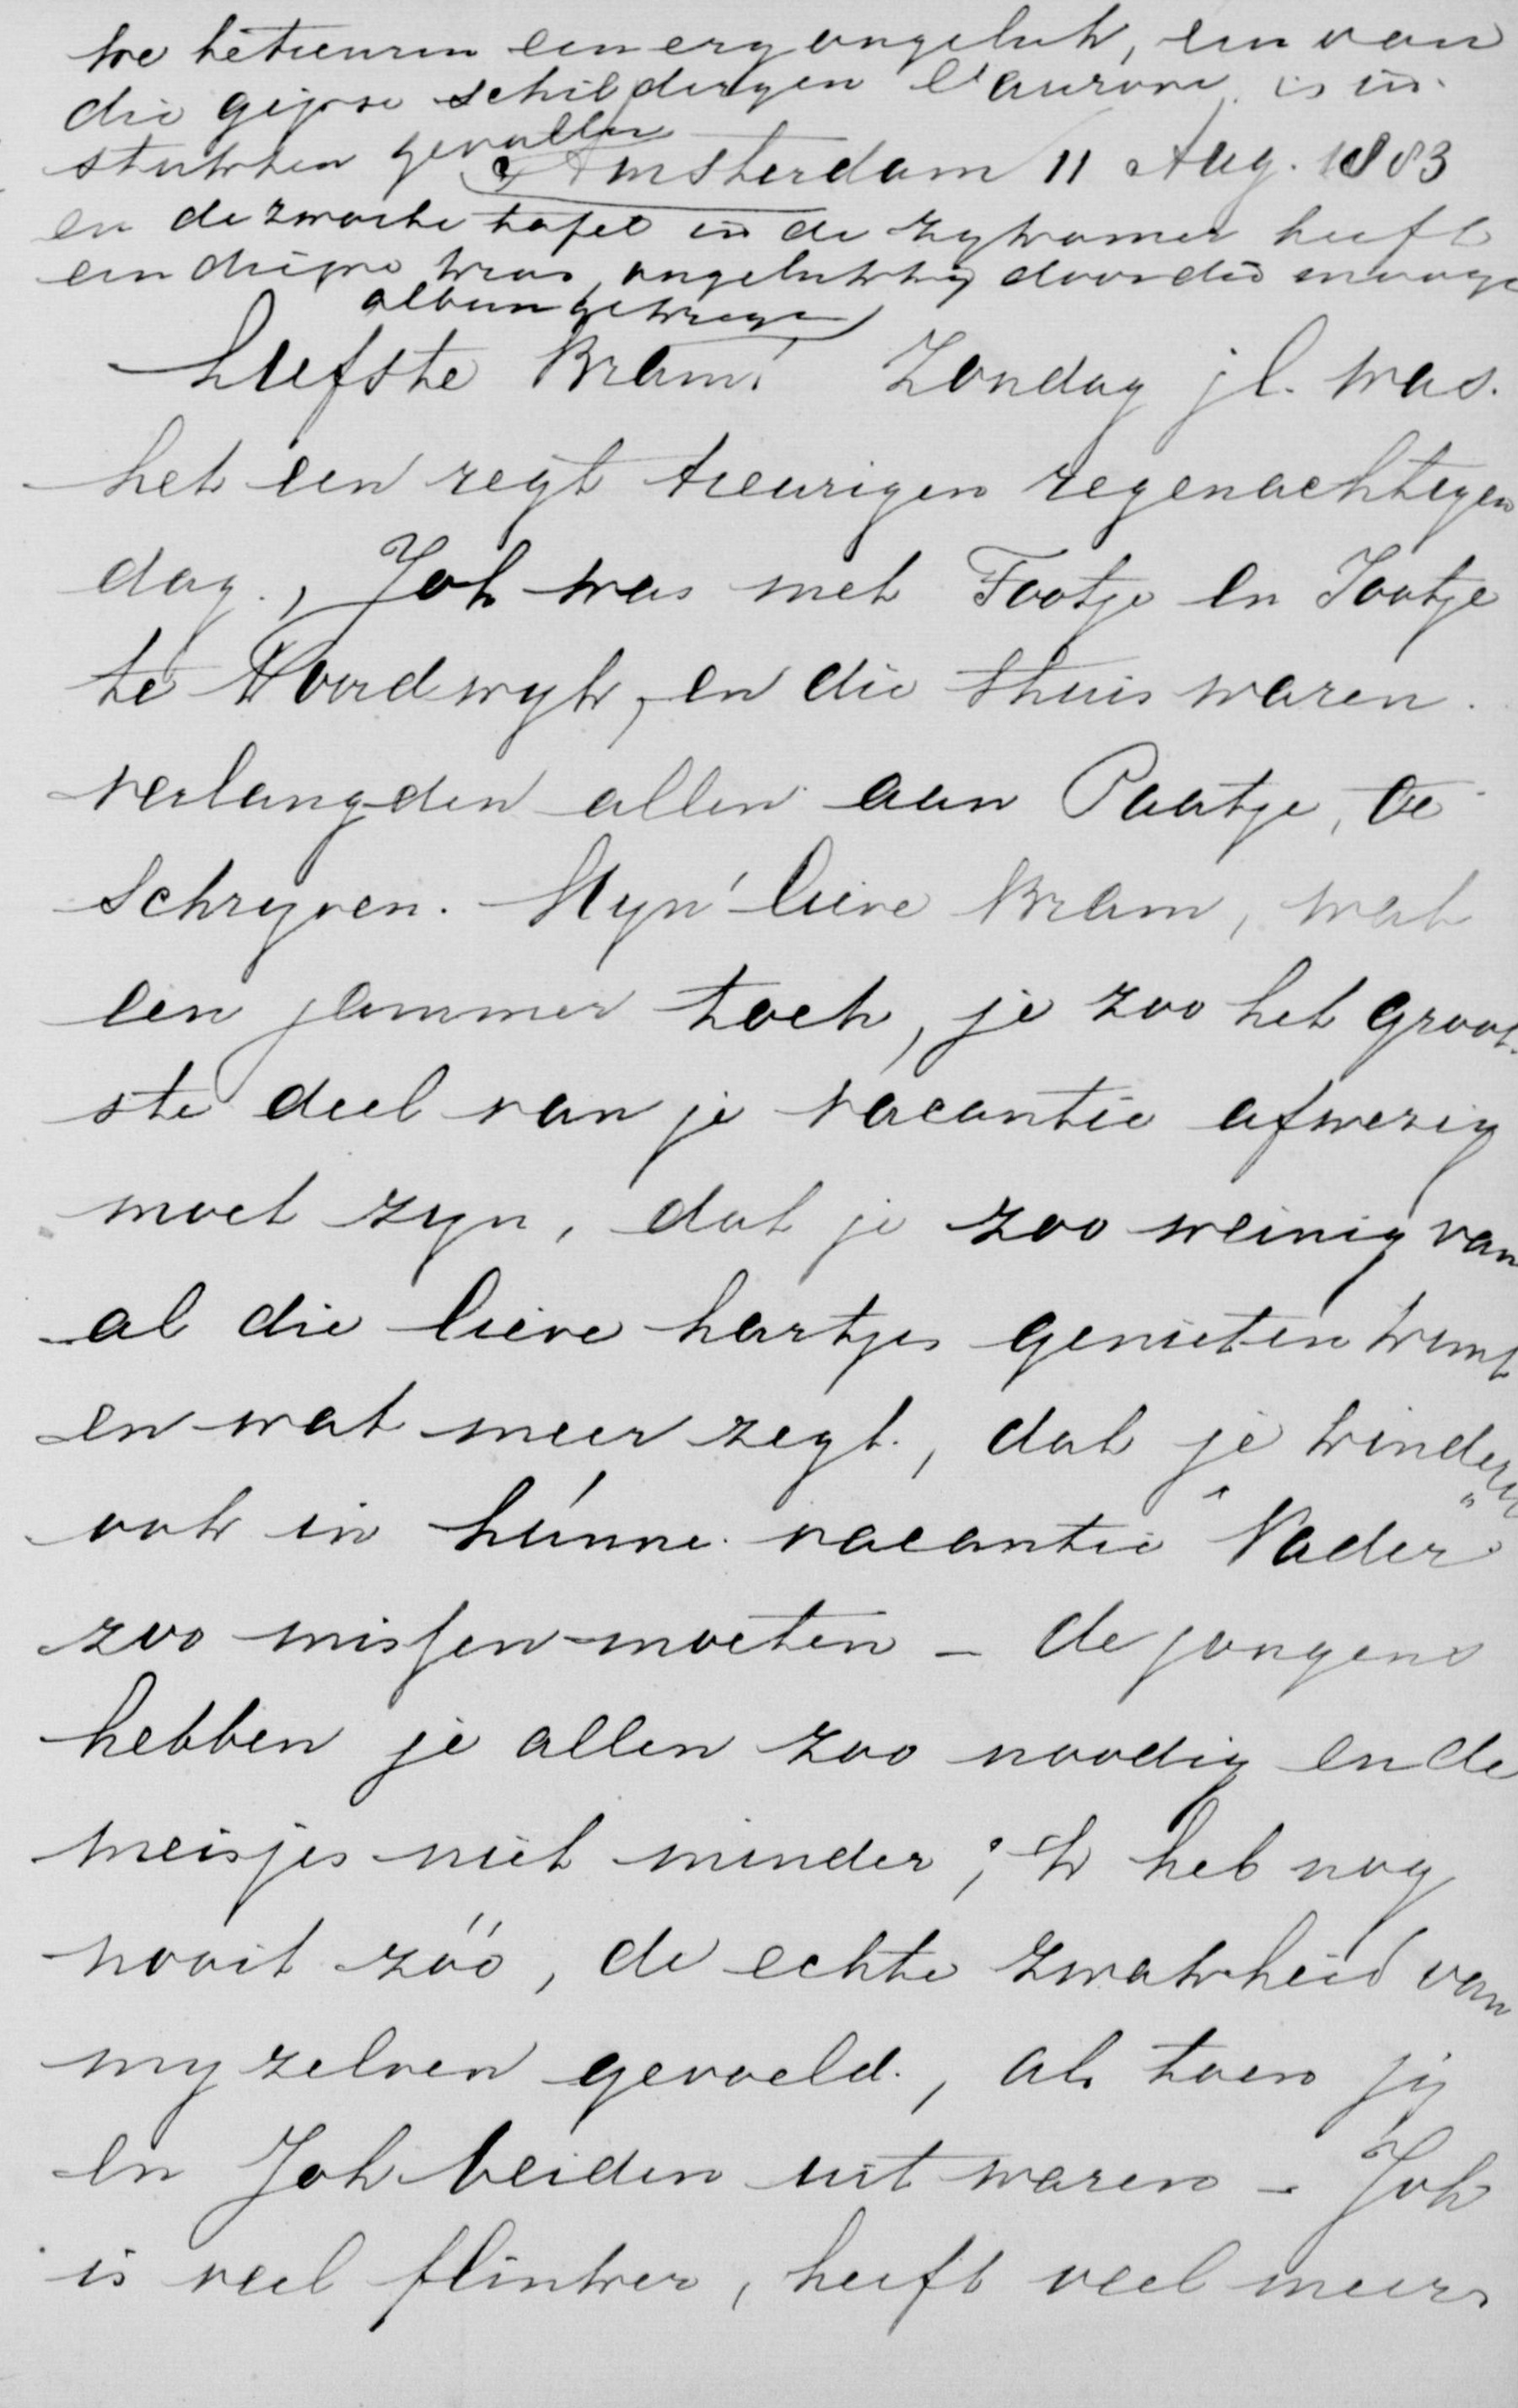 we betreuren een erg ongeluk, een van
die gipse schilderyen l'aurore is in
stukken gevallen
Amsterdam 11 Aug. 1883
en de zwarte tafel in de zykamer heeft
een diepe kras, ongelukkig door dit mooye
album gekregen
Liefste Bram! Zondag jl. was
het een regt treurigen regenachtigen
dag., Joh was met Tootje en Jootje
te Noordwyk, en die thuis waren
verlangden allen aan Paatje, te
schryven. Myn lieve Bram, wat
een jammer toch, je zoo het groot
ste deel van je vacantie afwezig
moet zyn, dat je zoo weinig van
al die lieve hartjes genieten kunt
en wat meer zegt, dat je kinderen
ook in húnne vacantie "Vader"
zoo missen moeten - de jongens
hebben je allen zoo noodig en de
meisjes niet minder; ik heb nog
nooit zóó, de echte zwakheid van
my zelven gevoeld., als toen jy
en Joh beiden uit waren - Joh
is veel flinker, heeft veel meer